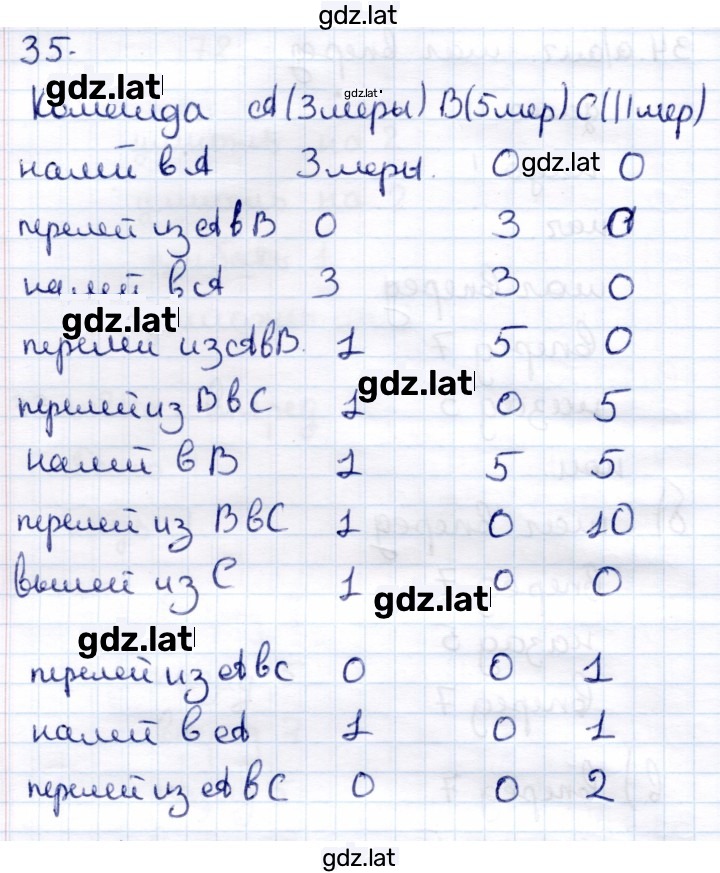 gdz.lat
35.
gdz.lat
gdz.lat
Команда А(3меры) В(5мер) С(11мер)
налей в А 3меры. 0 gdz.lat 0
перелей из А в В 0 3 0
налей в А 3 3 0
gdz.lat
перелей из А в В. 1 5 0
gdz.lat
перелей из В в С 1 0 5
налей в В 1 5 5
перелей из В в С 1 0 10
вылей из С 1 0 0
gdz.lat
gdz.lat
перелей из А в С 0 0 1
налей в А 1 0 1
перелей из А в С 0 0 2
gdz.lat